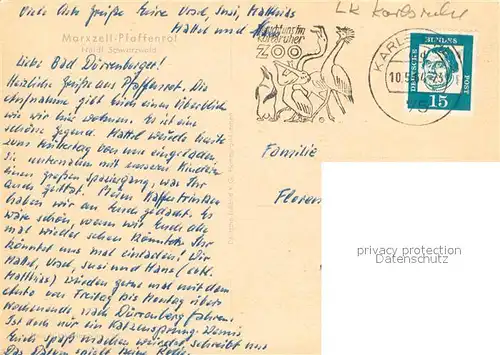 Viele liebe Grüße Eure Ursel, Susi, Matthias
Mattel und Hans
LK Karlsruhe
Marxzell-Pfaffenrot
Nördl. Schwarzwald
Karlsruher
ZOO
KARLS
10.
DEUTSCHE BUNDES POST
15
Liebe Bad Dürrenberger!
Herzliche Grüße aus Pfaffenrot. Die
Aufnahme gibt Euch einen Überblick
wie wir hier wohnen. Es ist eine
schöne Gegend. Mattel wurde heute
von uns eingeladen.
Sie unternahm mit unseren Kindern
einen großen Spaziergang, was Ihr
auch guttat. Beim Kaffeetrinken
haben wir an Euch gedacht. Es
wäre schön, wenn wir Euch alle
mal wieder sehen könnten. Ihr
könntet uns mal einladen! Wir
Mattel, Ursel, Susi und Hans (evtl.
Matthias) würden gerne mal mit dem
Auto von Freitag bis Montag übers
Wochenende nach Dürrenberg fahren.
Ist doch nur ein Katzensprung. Wenn's
Euch Spaß machen würde schreibt uns
Das Datum spielt keine Rolle.
Familie
Floren
PROTECTED COPYRIGHT
www.ansichtskarten-center.de